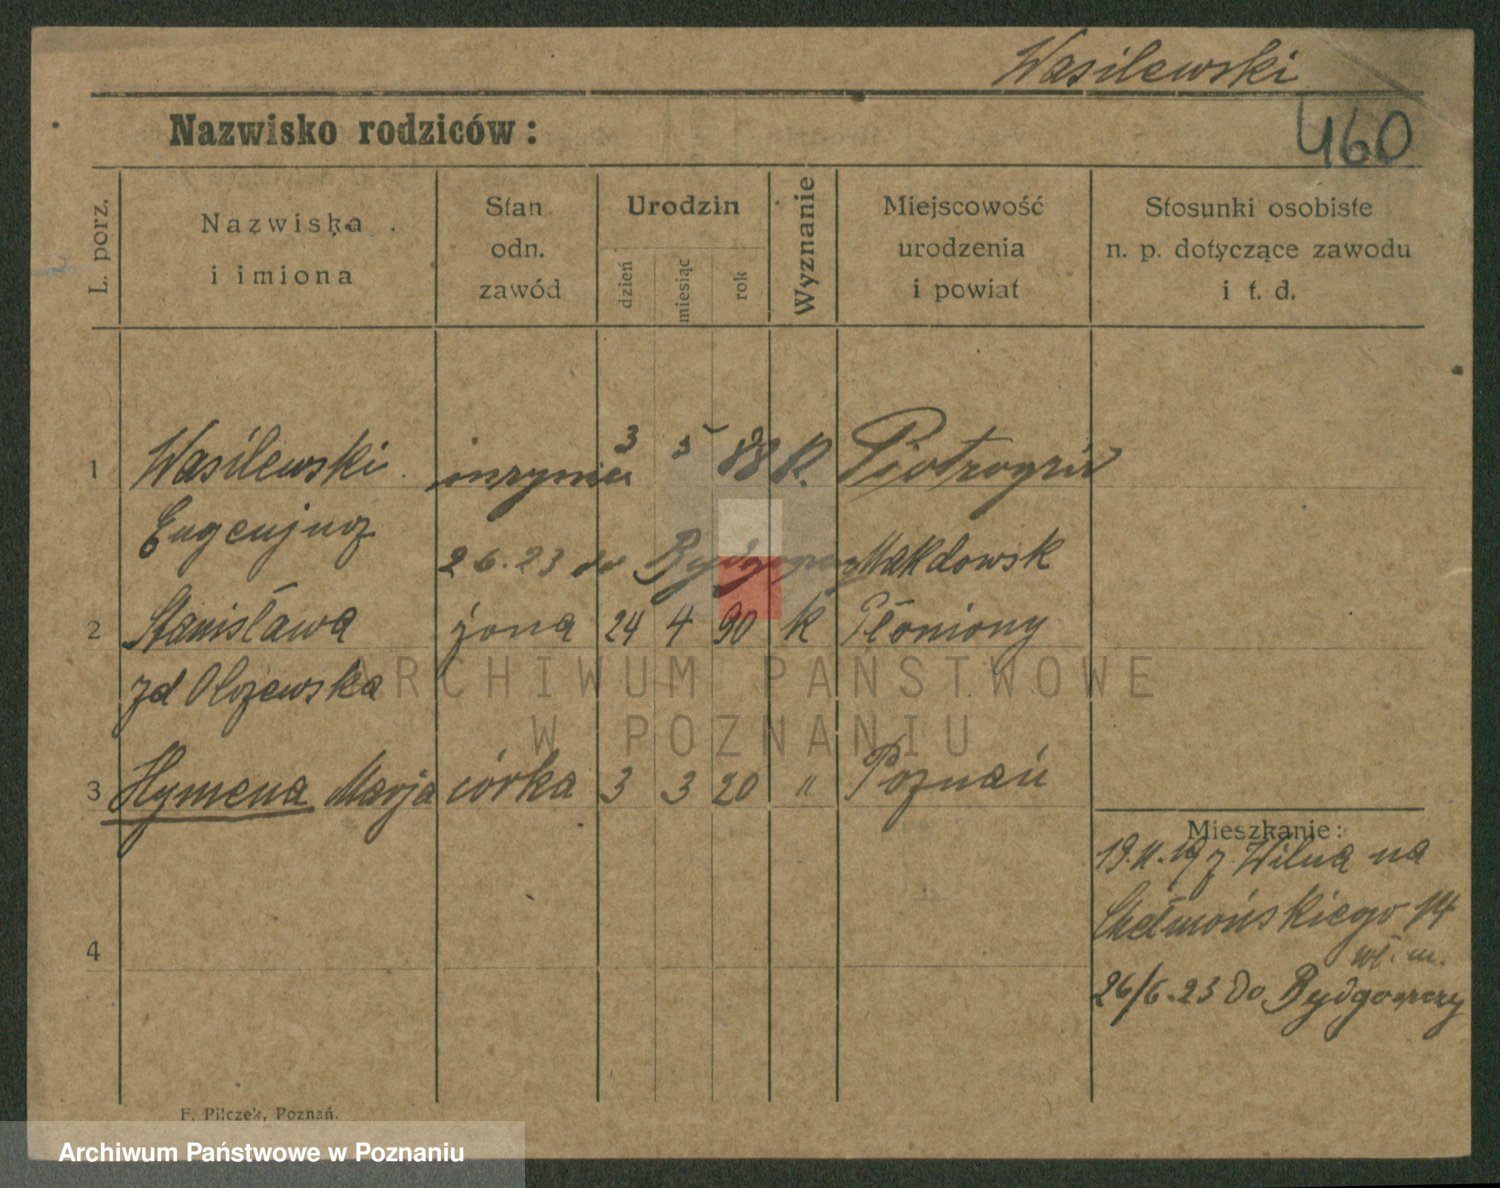 Wasilewski
Nazwisko rodziców:
460
L. porz.
Nazwiska
i imiona
Stan
odn.
zawód
Urodzin
dzień
miesiąc
rok
Wyznanie
Miejscowość
urodzenia
i powiat
Stosunki osobiste
n. p. dotyczące zawodu
i t. d.
1 Wasilewski 3 5 88
Eugenjusz
26.23 do Bydgoszczy
2 Stanisława żona 24 4 90 k Płoniony
zd Olszewska
3 Hymena Marja córka 3 3 20 " Poznań
Mieszkanie:
z Wilna na
Chełmońskiego 14
wł. m.
4
26/6.23 do Bydgoszczy
F. Pilczek, Poznań.
ARCHIWUM PAŃSTWOWE
W POZNANIU
Archiwum Państwowe w Poznaniu